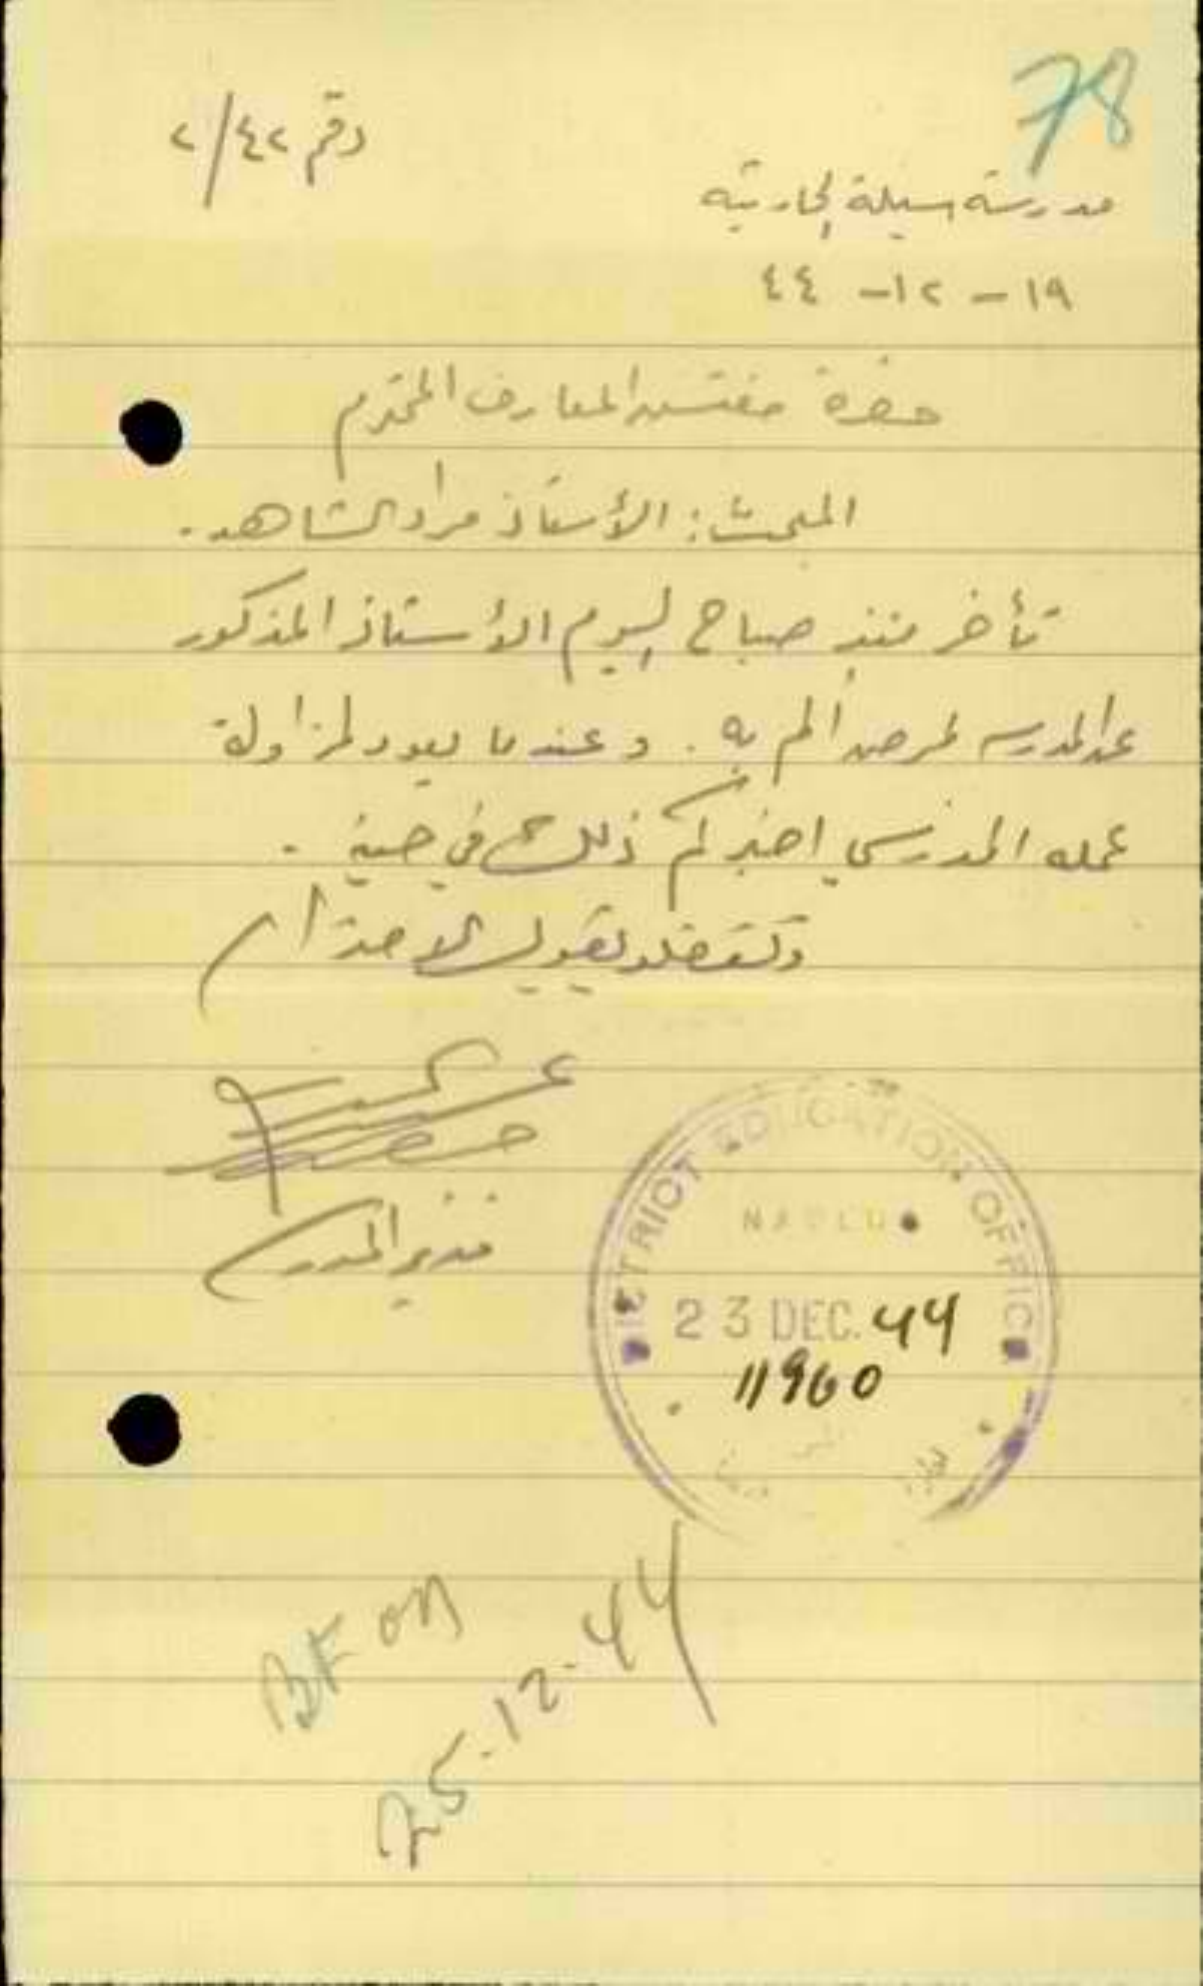 78
رقم ٤٢/٢
مدرسة سيلة الحارثية
١٩ - ١٢ - ٤٤
حضرة مفتش المعارف المحترم
المبحث: الأستاذ مراد الشاهد.
تأخر منذ صباح اليوم الأستاذ المذكور
عن المدرسه لمرض ألم به. وعندما يعود لمزاولة
عمله المدرسي اخبركم ذلك في حينه.
وتفضلوا بقبول الاحترام
مدير المدرسة
DISTRICT EDUCATION OFFICE
NABLUS
23 DEC. 44
11960
BF on
25-12-44